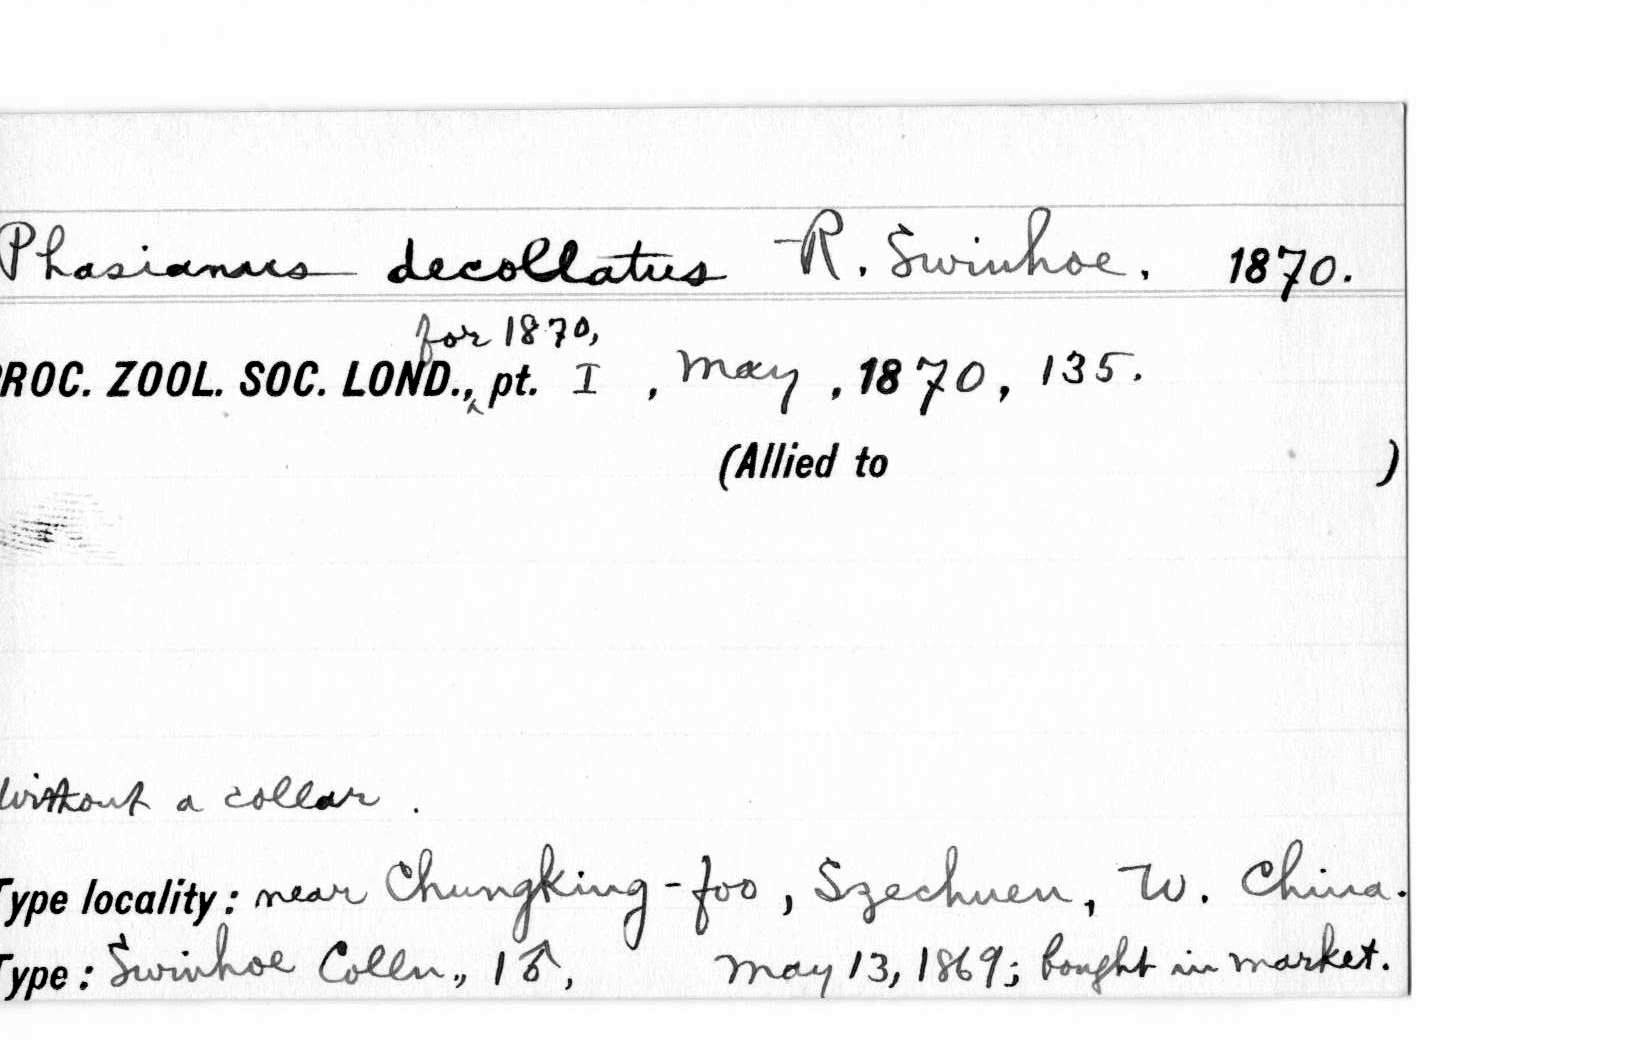 Phasianus decollatus R. Swinhoe. 1870.
for 1870,
PROC. ZOOL. SOC. LOND., pt. I, May, 1870, 135.
(Allied to )
Without a collar.
Type locality: near Chungking-foo, Szechuen, W. China.
Type: Swinhoe Colln., 1♂, May 13, 1869; bought in market.